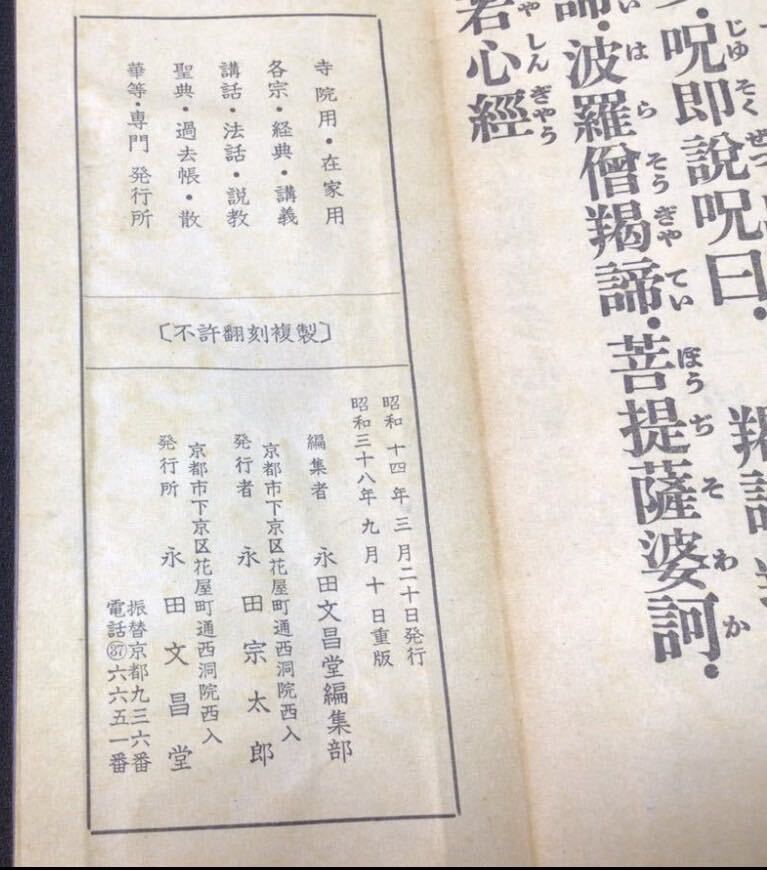 呪即說呪曰・
羯諦
じゆそくぜつ
諦・波羅僧羯諦・菩提薩婆訶・
いはらそうぎやていぼうぢそわか
若心經
やしんぎやう
寺院用・在家用
各宗・経典・講義
講話・法話・説教
聖典・過去帳・散
華等・専門発行所
〔不許翻刻複製〕
昭和十四年三月二十日発行
昭和三十八年九月十日重版
編集者 永田文昌堂編集部
京都市下京区花屋町通西洞院西入
発行者 永田宗太郎
京都市下京区花屋町通西洞院西入
発行所 永田文昌堂
振替京都九三六番
電話㊲六六五一番